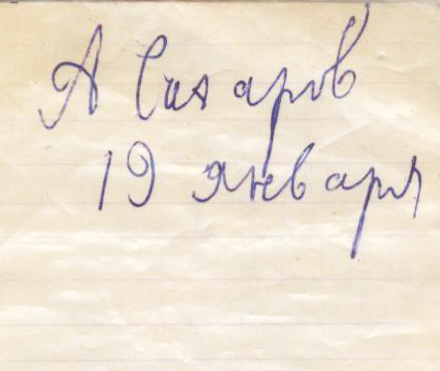 А Сахаров
19 января